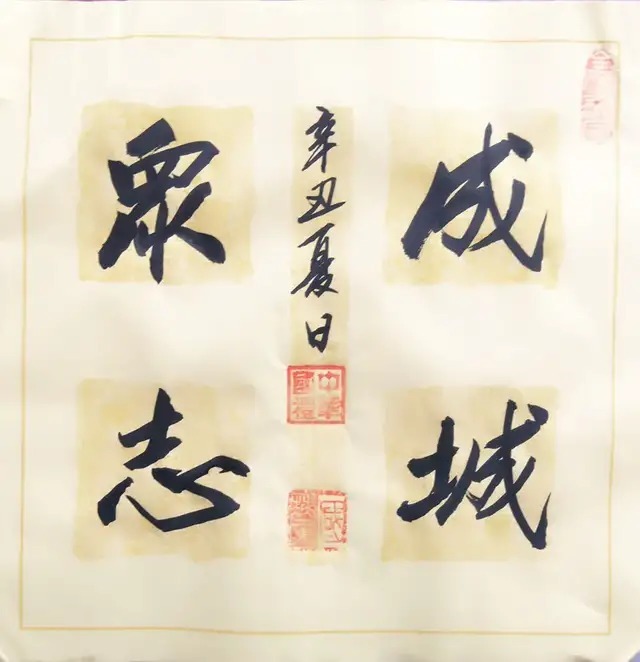 衆志
成城
辛丑夏日